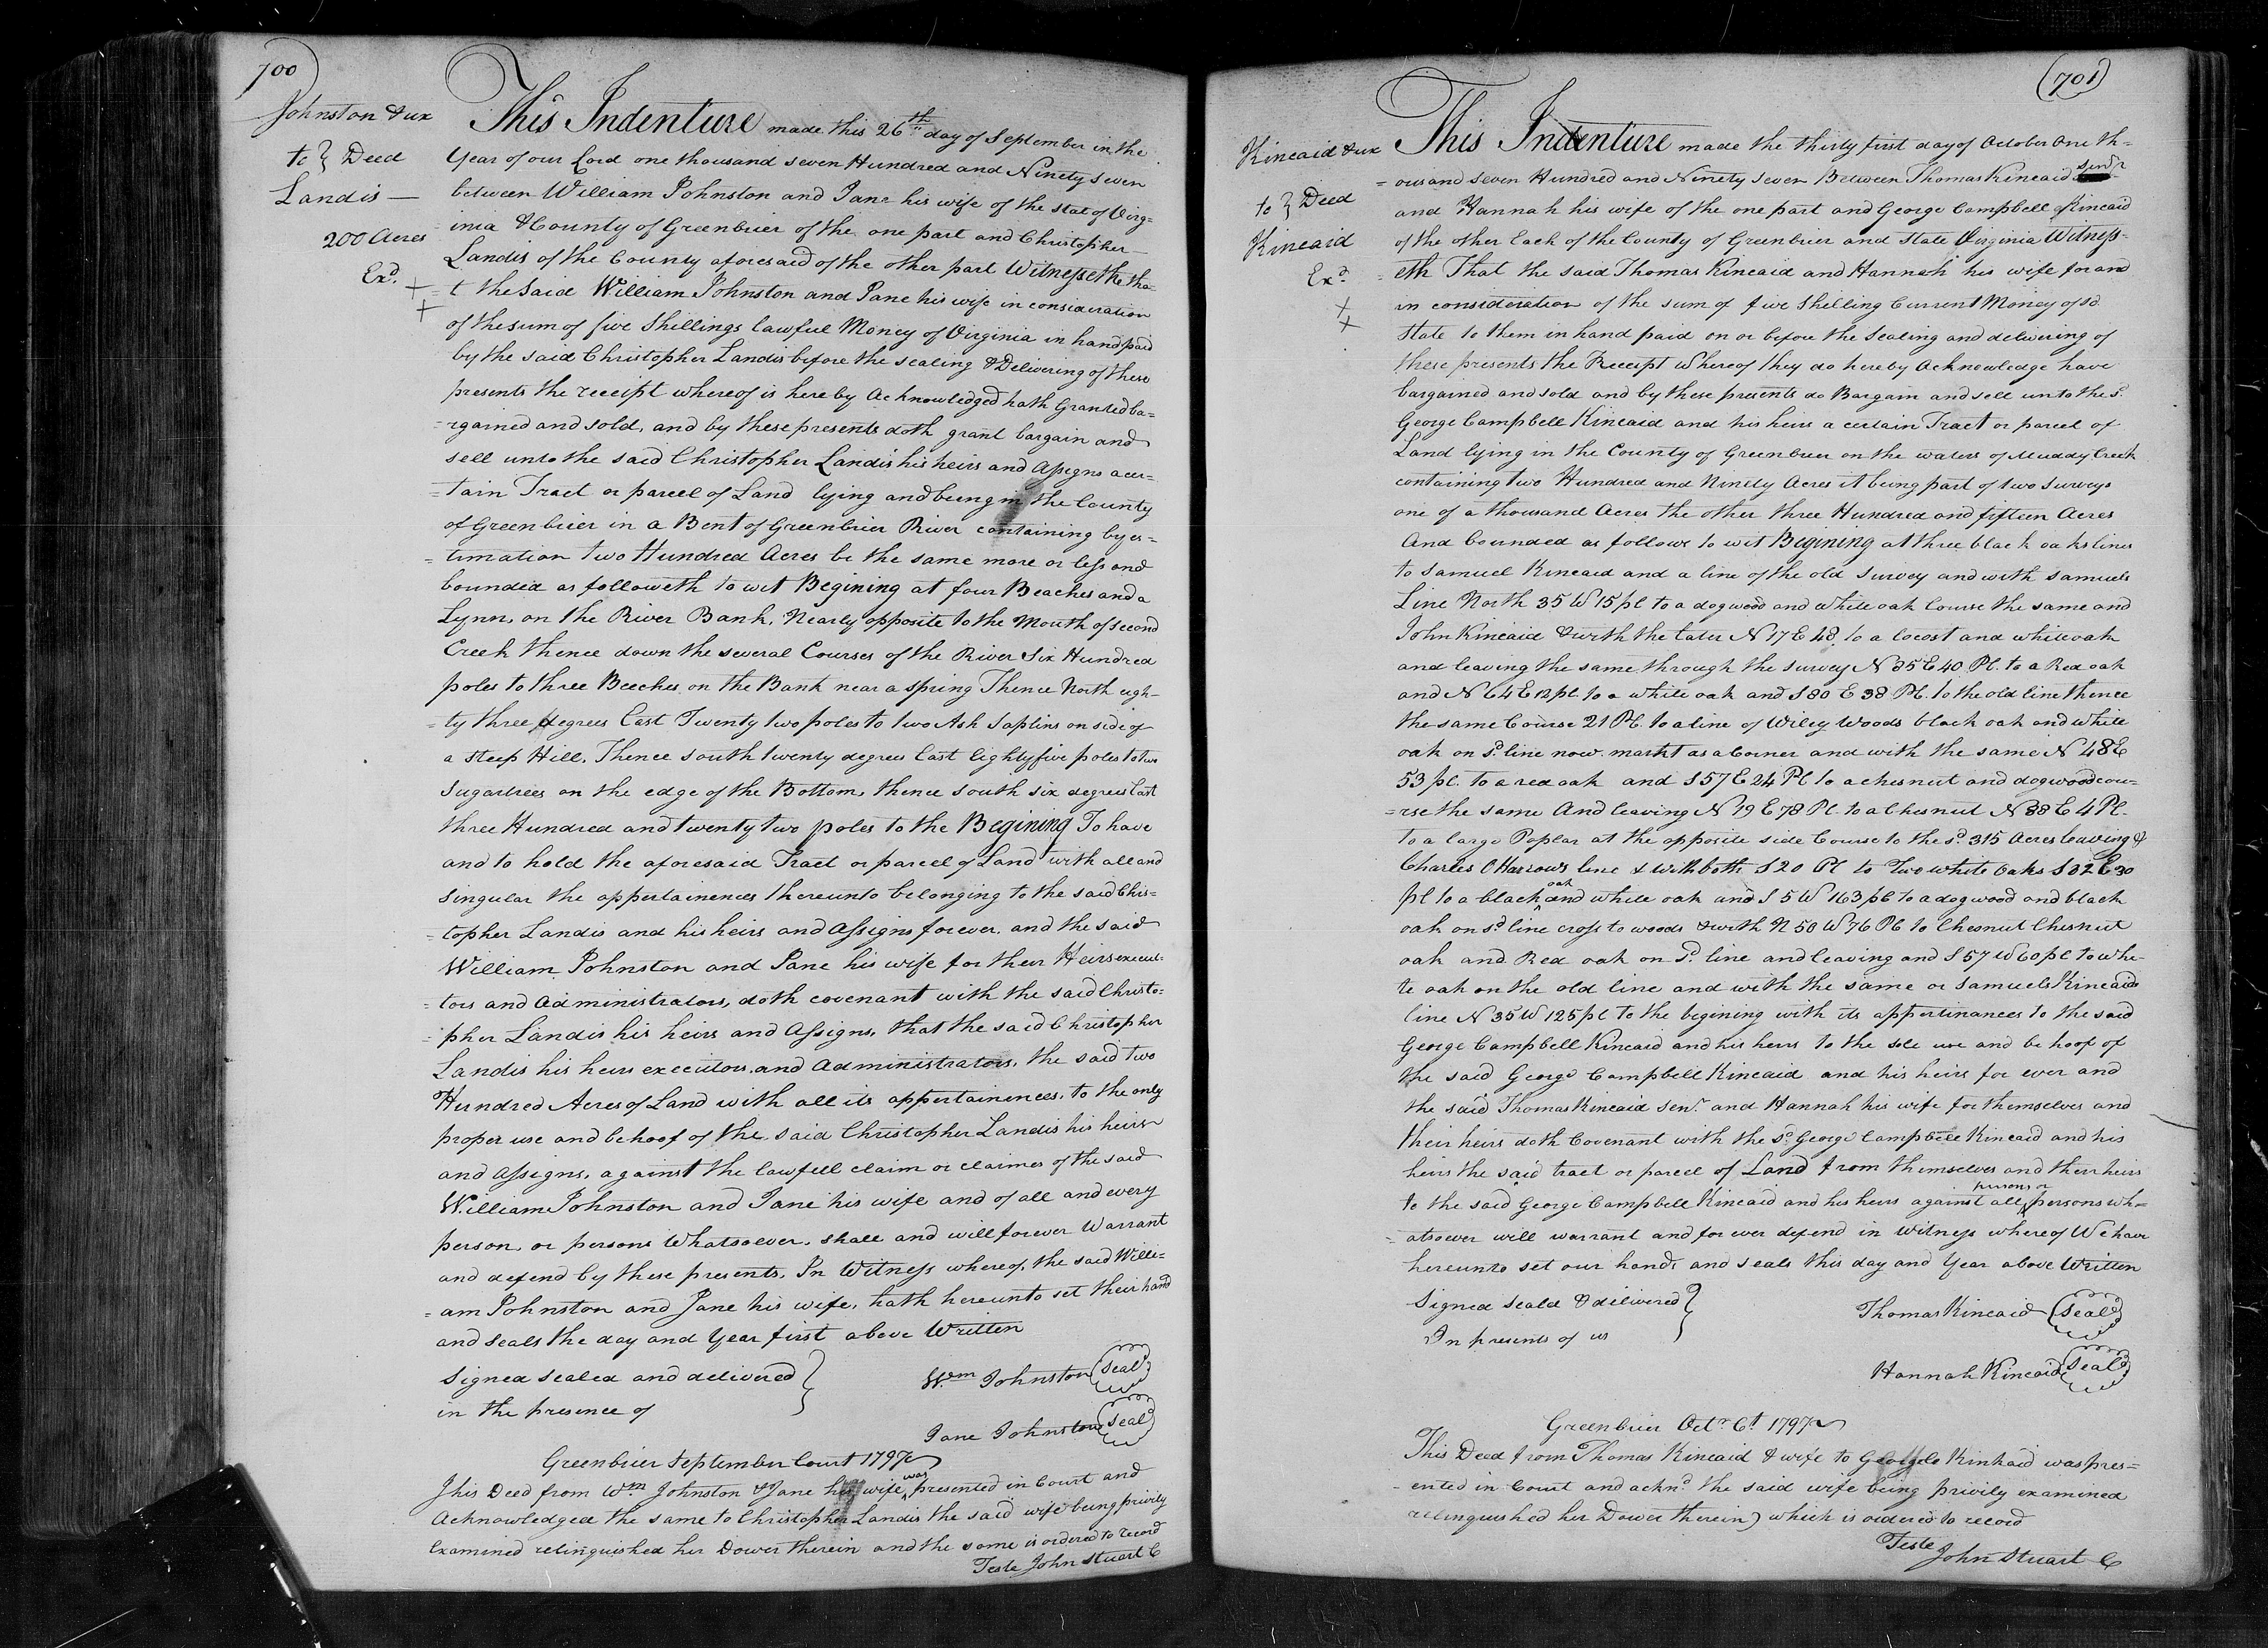 700
Johnston & ux
to } Deed
Landis —
200 Acres
Exd.
This Indenture made this 26th day of September in the
Year of our Lord one thousand seven Hundred and Ninety seven
between William Johnston and Jane his wife of the state of Virg=
inia & County of Greenbrier of the one part and Christopher
Landis of the County aforesaid of the other part Witnesseth tha=
= t the said William Johnston and Jane his wife in consideration
of the sum of five Shillings lawfull Money of Virginia in hand paid
by the said Christopher Landis before the sealing & Delivering of these
presents the receipt whereof is here by Acknowledged hath Granted ba=
= rgained and sold, and by these presents doth grant bargain and
sell unto the said Christopher Landis his heirs and Assigns a cer=
= tain Tract or parcel of Land lying and being in the County
of Greenbrier in a Bent of Greenbrier River containing by es=
= timation two Hundred Acres be the same more or less and
bounded as followeth to wit Begining at four Beaches and a
Lynn, on the River Bank, Nearly opposite to the Mouth of second
Creek thence down the several Courses of the River Six Hundred
poles to three Beeches on the Bank near a spring Thence North eigh=
= ty three degrees East Twenty two poles to two Ash Saplins on side of
a steep Hill, Thence south twenty degrees East Eighty five poles to two
Sugartrees on the edge of the Bottom, thence south six degrees East
three Hundred and twenty two poles to the Begining To have
and to hold the aforesaid Tract or parcel of Land with all and
singular the appertainences thereunto belonging to the said Chris=
= topher Landis and his heirs and Assigns forever, and the said
William Johnston and Jane his wife for their Heirs execu=
= tors and administrators, doth covenant with the said Christo=
= pher Landis his heirs and Assigns, that the said Christopher
Landis his heirs executors, and administrators, the said two
Hundred Acres of Land with all its appertainences, to the only
proper use and behoof of the said Christopher Landis his heirs
and Assigns, against the lawfull claim or claimes of the said
William Johnston and Jane his wife and of all and every
person, or persons Whatsoever, shall and will forever Warrant
and defend by these presents, In Witness whereof, the said Willi=
= am Johnston and Jane his wife, hath hereunto set their hand
and seals the day and Year first above Written
Signed sealed and delivered }
in the presence of
Wm Johnston (Seal)
Jane Johnston (Seal)
Greenbrier September Court 1797
This Deed from Wm Johnston & Jane his wife was presented in Court and
Acknowledged the same to Christopher Landis the said wife being privily
Examined relinquished her Dower therein and the same is ordered to record
Teste John Stuart C
(701)
Kincaid & ux
to } Deed
Kincaid
Exd
This Indenture made the thirty first day of October One th=
= ousand seven Hundred and Ninety seven Between Thomas Kincaid Senr
and Hannah his wife of the one part and George Campbell Kincaid
of the other Each of the County of Greenbrier and State Virginia Witness=
= eth That the said Thomas Kincaid and Hannah his wife for and
in consideration of the sum of five Shilling Current Money of sd.
State to them in hand paid on or before the Sealing and delivering of
these presents the Receipt Whereof they do hereby Acknowledge have
bargained and sold and by these presents do Bargain and sell unto the sd.
George Campbell Kincaid and his heirs a certain Tract or parcel of
Land lying in the County of Greenbrier on the waters of Muddy Creek
containing two Hundred and Ninety Acres it being part of two Surveys
one of a thousand Acres the other three Hundred and fifteen Acres
And bounded as follows to wit Begining at three black oaks lines
to Samuel Kincaid and a line of the old Survey and with Samuels
Line North 35 W 15 pl to a dogwood and White oak Course the same and
John Kincaid & with the later N 17 E 48 to a locost and white oak
and leaving the same through the survey N 35 E 40 Pl. to a Red oak
and N 64 E 12 pl. to a white oak and S 80 E 38 Pl. to the old line thence
the same Course 21 Pl. to a line of Wiley Woods black oak and White
oak on sd. line now markt as a Corner and with the same N 48 E
53 pl. to a red oak and S 57 E 24 Pl to a chesnut and dogwood cou=
= rse the same And leaving N 19 E 78 Pl. to a Chesnut N 38 E 4 Pl.
to a large Poplar at the opposite side Course to the sd. 315 Acres leaving &
Charles OHarrows line & with both S 20 Pl to Two white Oaks S 32 E 30
pl to a black oak and white oak and S 5 W 163 pl to a dogwood and black
oak on sd. line cross to woods & with N 50 W 76 Pl to Chesnut Chesnut
oak and Red oak on sd. line and leaving and S 57 W 60 pl to whi=
te oak on the old line and with the same or Samuels Kincaids
line N 35 W 125 pl to the begining with its appertinances to the said
George Campbell Kincaid and his heirs to the sole use and be hoof of
the said George Campbell Kincaid and his heirs for ever and
the said Thomas Kincaid Senr. and Hannah his wife for themselves and
their heirs doth Covenant with the sd. George Campbell Kincaid and his
heirs the said tract or parcel of Land from themselves and their heirs
to the said George Campbell Kincaid and his heirs against all persons or persons wh=
= atsoever will warrant and for ever defend in Witness whereof We have
hereunto set our hands and seals this day and Year above Written
Signed Seald & delivered }
In presents of us
Thomas Kincaid (Seal)
Hannah Kincaid (Seal)
Greenbrier Octr. Ct. 1797
This Deed from Thomas Kincaid & wife to George C Kinkaid was pres=
= ented in Court and acknd. the said wife being privily examined
relinquished her Dower therein which is ordered to record
Teste
John Stuart C